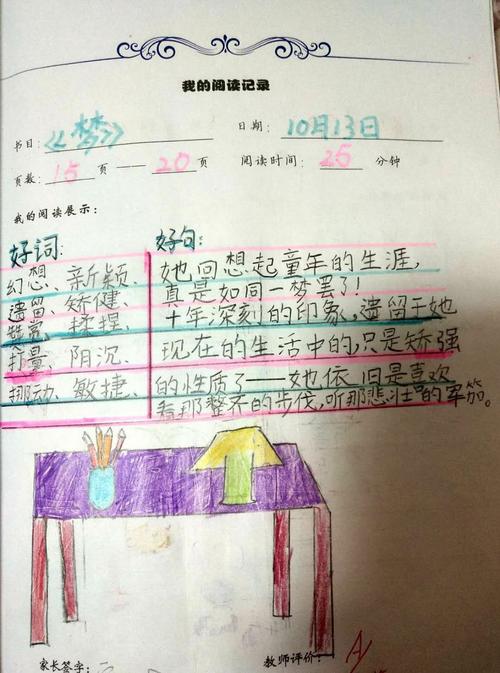 我的阅读记录
书目:《梦》 日期: 10月13日
页数: 15 页 —— 20 页 阅读时间: 25 分钟
我的阅读展示:
好词: 好句:
幻想、新颖、 她回想起童年的生涯,
遗留、矫健、 真是如同一梦罢了!
揉捏、 十年深刻的印象,遗留于她
打量、阴沉、 现在的生活中的,只是矫强
挪动、敏捷、 的性质了——她依旧是喜欢
看那整齐的步伐,听那悲壮的军笳。
家长签字: 教师评价: A